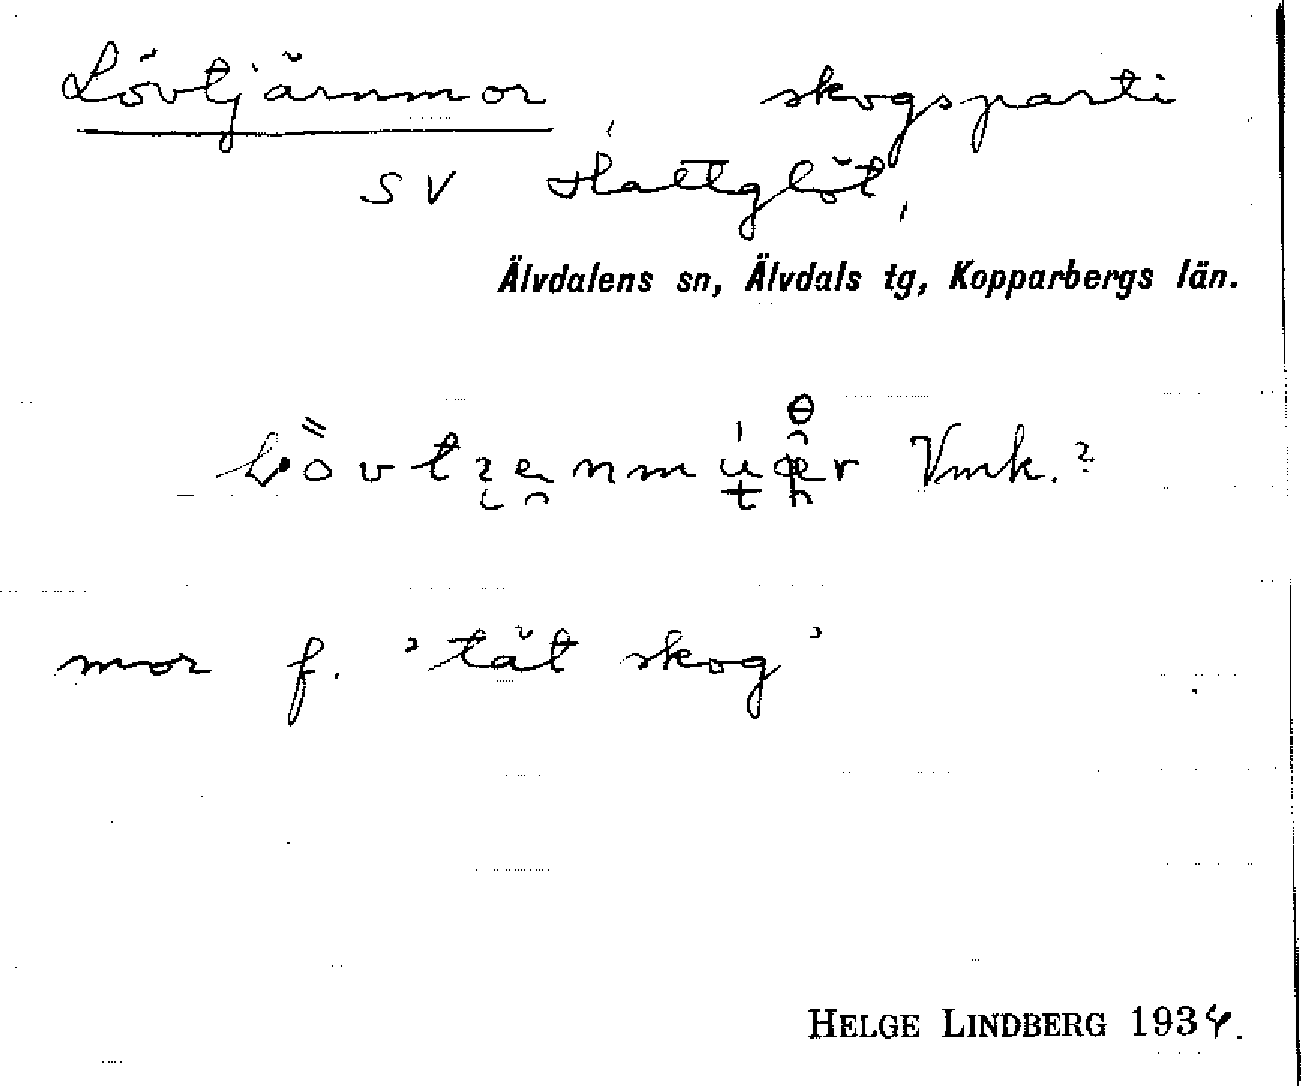 Lövtjärnmor skogsparti
SV Hattglöt,
Älvdalens sn, Älvdals tg, Kopparbergs län.
Vmk.?
mor f. 'tät skog'
HELGE LINDBERG 1934.